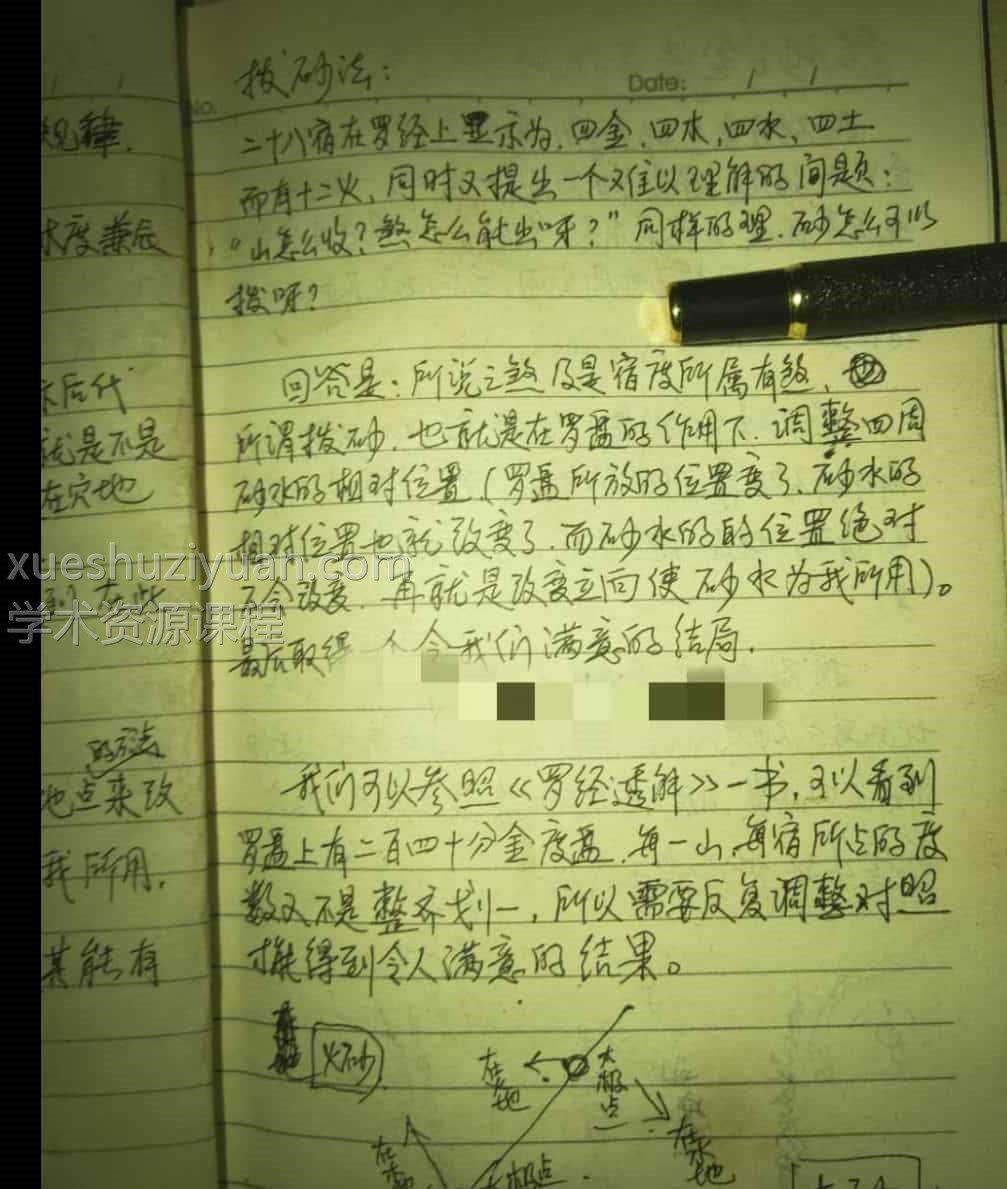 No. Date: / /
拨砂法：
二十八宿在罗经上显示为.四金.四木.四水、四土
而有十二火，同时又提出一个难以理解的问题：
“山怎么收？煞怎么能出呀？”同样的理.砂怎么可以
拨呀？
回答是：所说之煞及是宿度所属有煞、
所谓拨砂.也就是在罗盘的作用下.调整四周
砂水的相对位置（罗盘所放的位置变了、砂水的
相对位置也就改变了.而砂水的的位置绝对
不会改变.再就是改变立向使砂水为我所用）。
最后取得一个令我们满意的结局.
我们可以参照《罗经透解》一书，可以看到
罗盘上有二百四十分金度盘.每一山、每宿所占的度
数又不是整齐划一，所以需要反复调整对照
才能得到令人满意的结果。
火砂
在穴地
太极点
在木地
在木地
太极点
规律.
木度兼辰
后代
就是不是
在穴地
在此
的方法
地点来改
我所用.
其能有
xueshuziyuan.com
学术资源课程